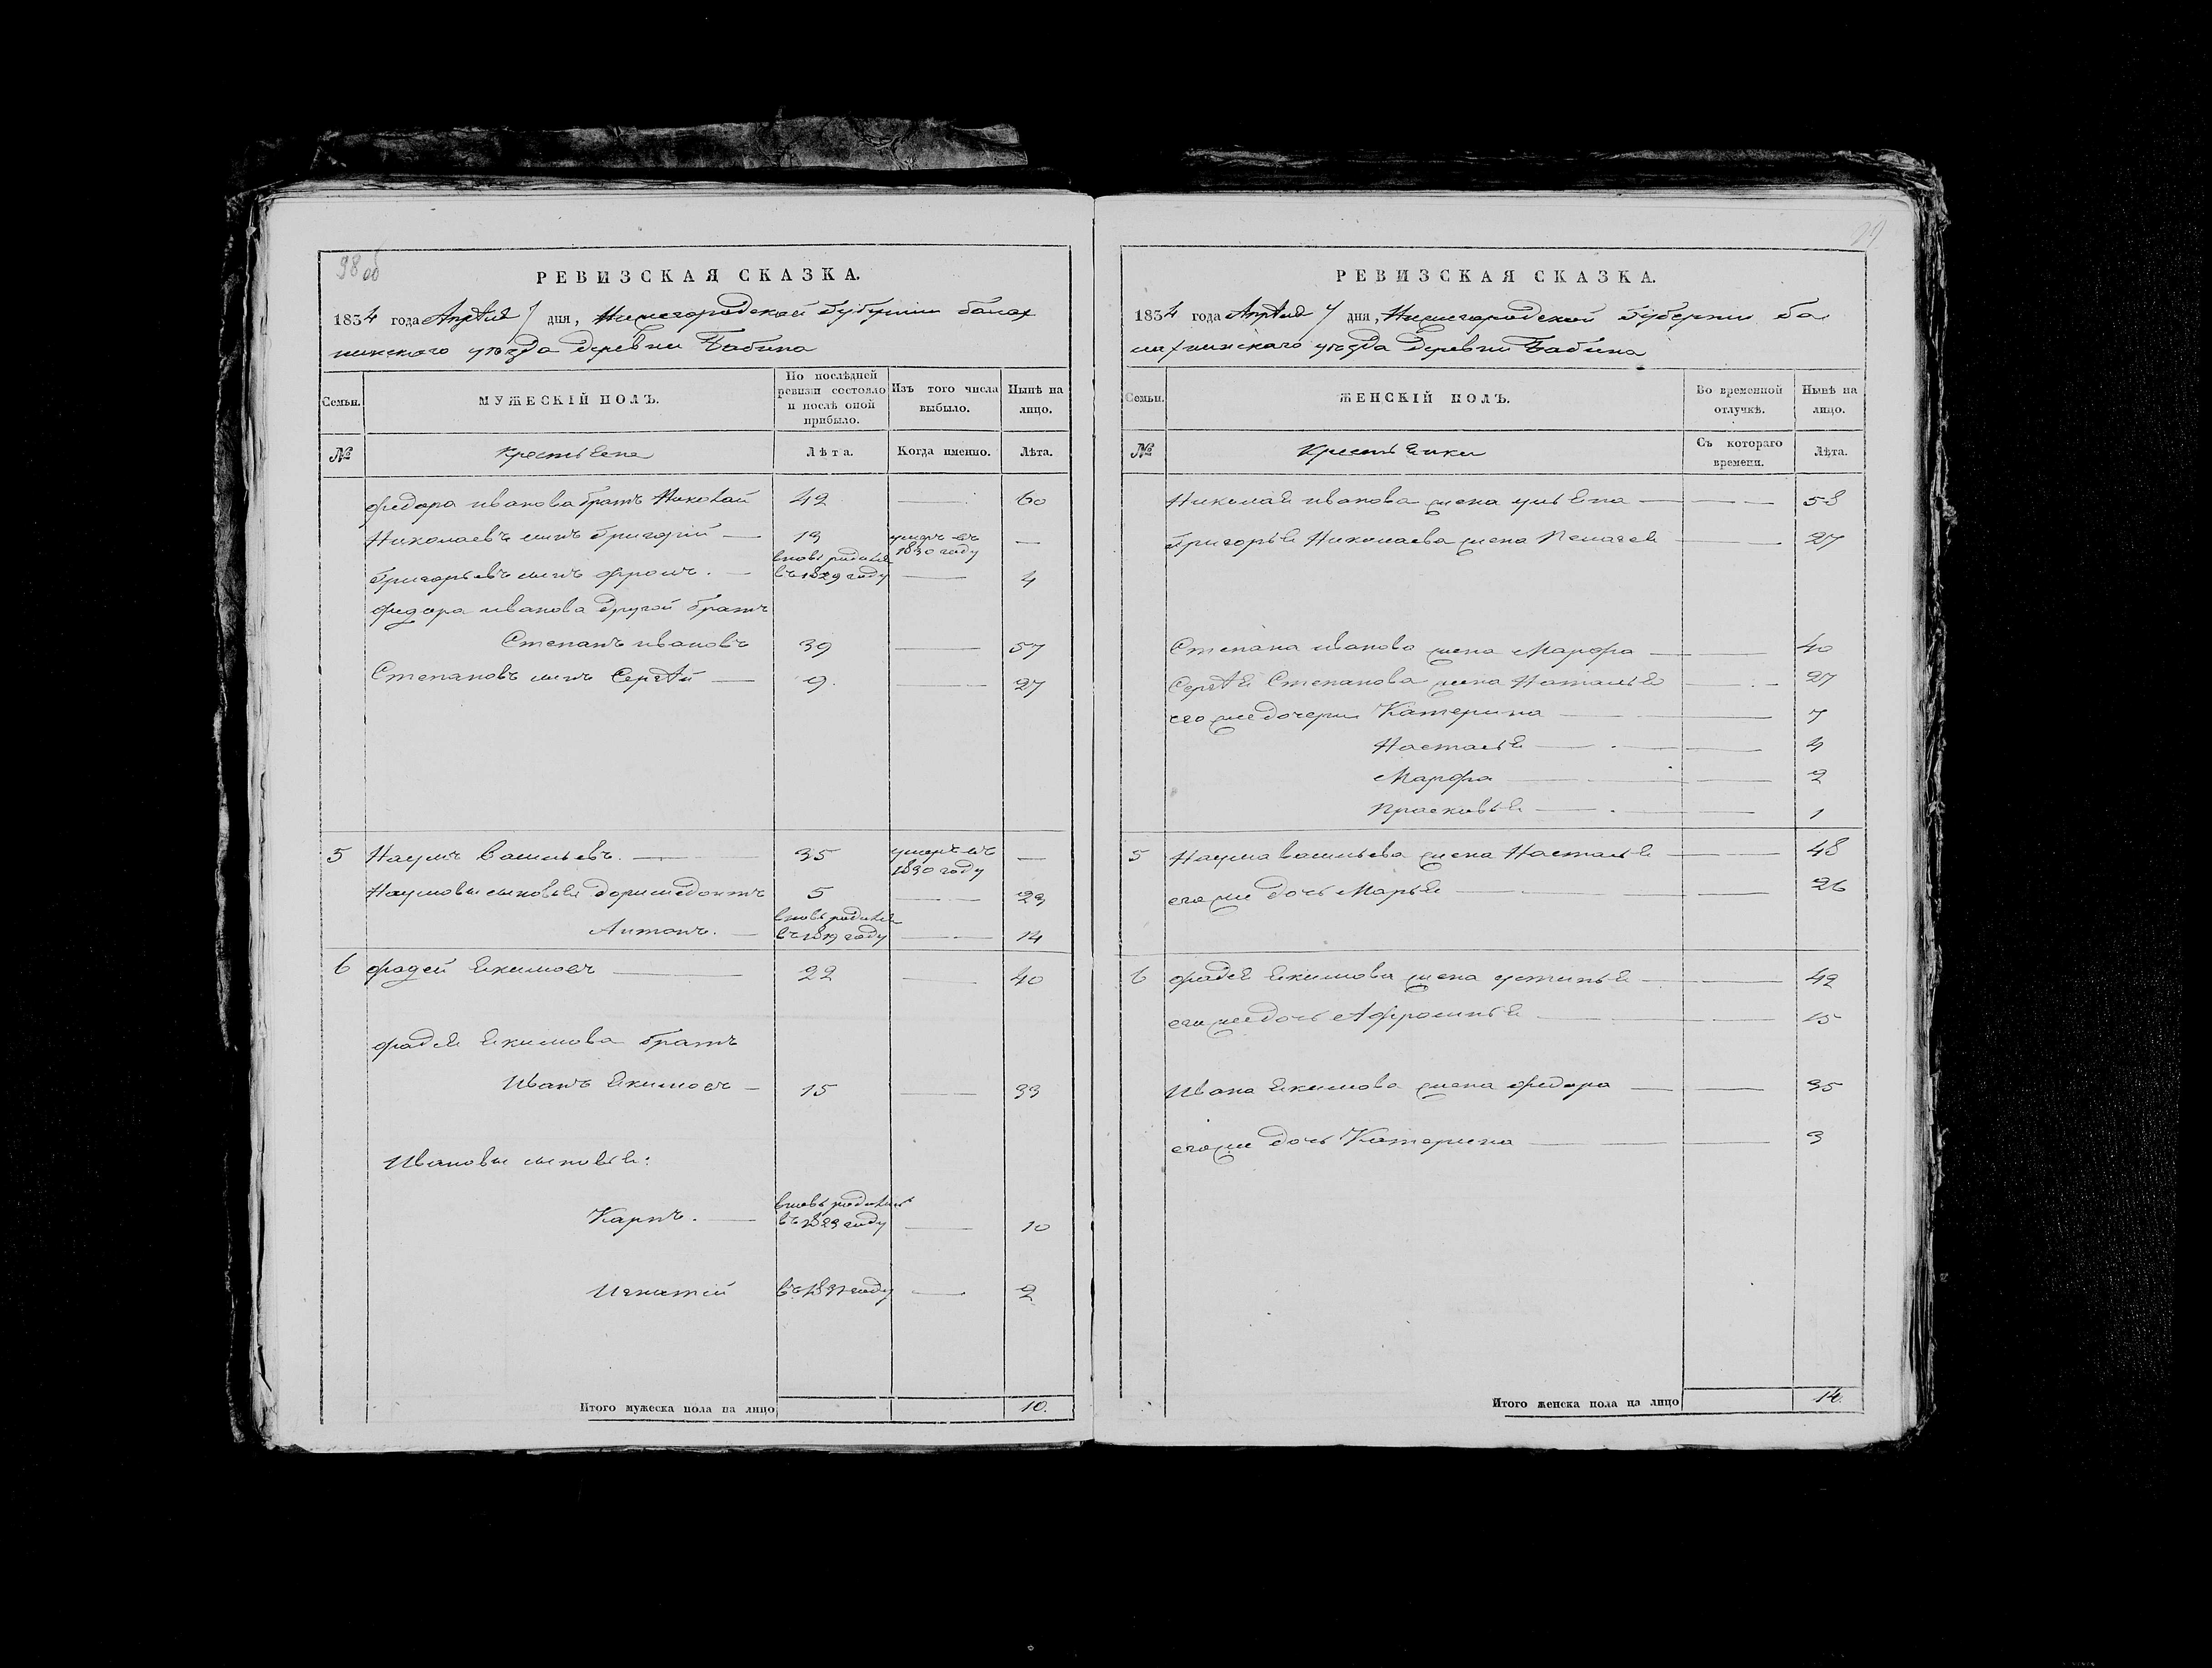 98 об
РЕВИЗСКАЯ СКАЗКА.
1834 года Апреля 7 дня, Нижегородской Губернии балах
нинского уезда деревни Бабина
Семьи.
МУЖЕСКІЙ ПОЛЪ.
По послѣдней ревизіи состояло и послѣ оной прибыло.
Изъ того числа выбыло.
Нынѣ на лицо.
№
Крестьяна
Лѣта.
Когда именно.
Лѣта.
федора иванова братъ Николай 42 — 60
Николаевъ сынъ Григорій — 13 умеръ въ 1830 году —
Григорьевъ сынъ фролъ. — вновь родился въ 1829 году — 4
федора иванова другой братъ
Степанъ ивановъ 39 — 57
Степановъ сынъ Сергѣй — 9 — 27
5 Наумъ васильевъ. — 35 умеръ въ 1830 году —
Наумовы сыновья доримедонтъ 5 — 23
Антонъ. — вновь родился въ 1819 году — 14
6 фадей Екимовъ — 22 — 40
фадея Екимова братъ
Иванъ Екимовъ — 15 — 33
Ивановы сыновья:
Карпъ. — вновь родились въ 1823 году — 10
Игнатій въ 1831 году — 2
Итого мужеска пола на лицо 10.
РЕВИЗСКАЯ СКАЗКА.
1834 года Апреля 7 дня, Нижегородской Губернии ба
лахнинскаго уезда деревни Бабина
Семьи.
ЖЕНСКІЙ ПОЛЪ.
Во временной отлучкѣ.
Нынѣ на лицо.
№
Крестьянки
Съ котораго времени.
Лѣта.
Николая иванова жена ульяна — — 58
Григорья Николаева жена Пелагея — — 27
Степана иванова жена Марфа — — 40
Сергѣя Степанова жена Наталья — — 27
его же дочери Катерина — — 7
Настасья — — 4
Марфа — — 2
Прасковья — — 1
5 Наума васильева жена Настасья — — 48
его же дочь Марья — — 26
6 фадея Екимова жена устинья — — 42
его же дочь Афросинья — — 15
Ивана Екимова жена федора — — 35
его же дочь Катерина — — 3
Итого женска пола на лицо 14.